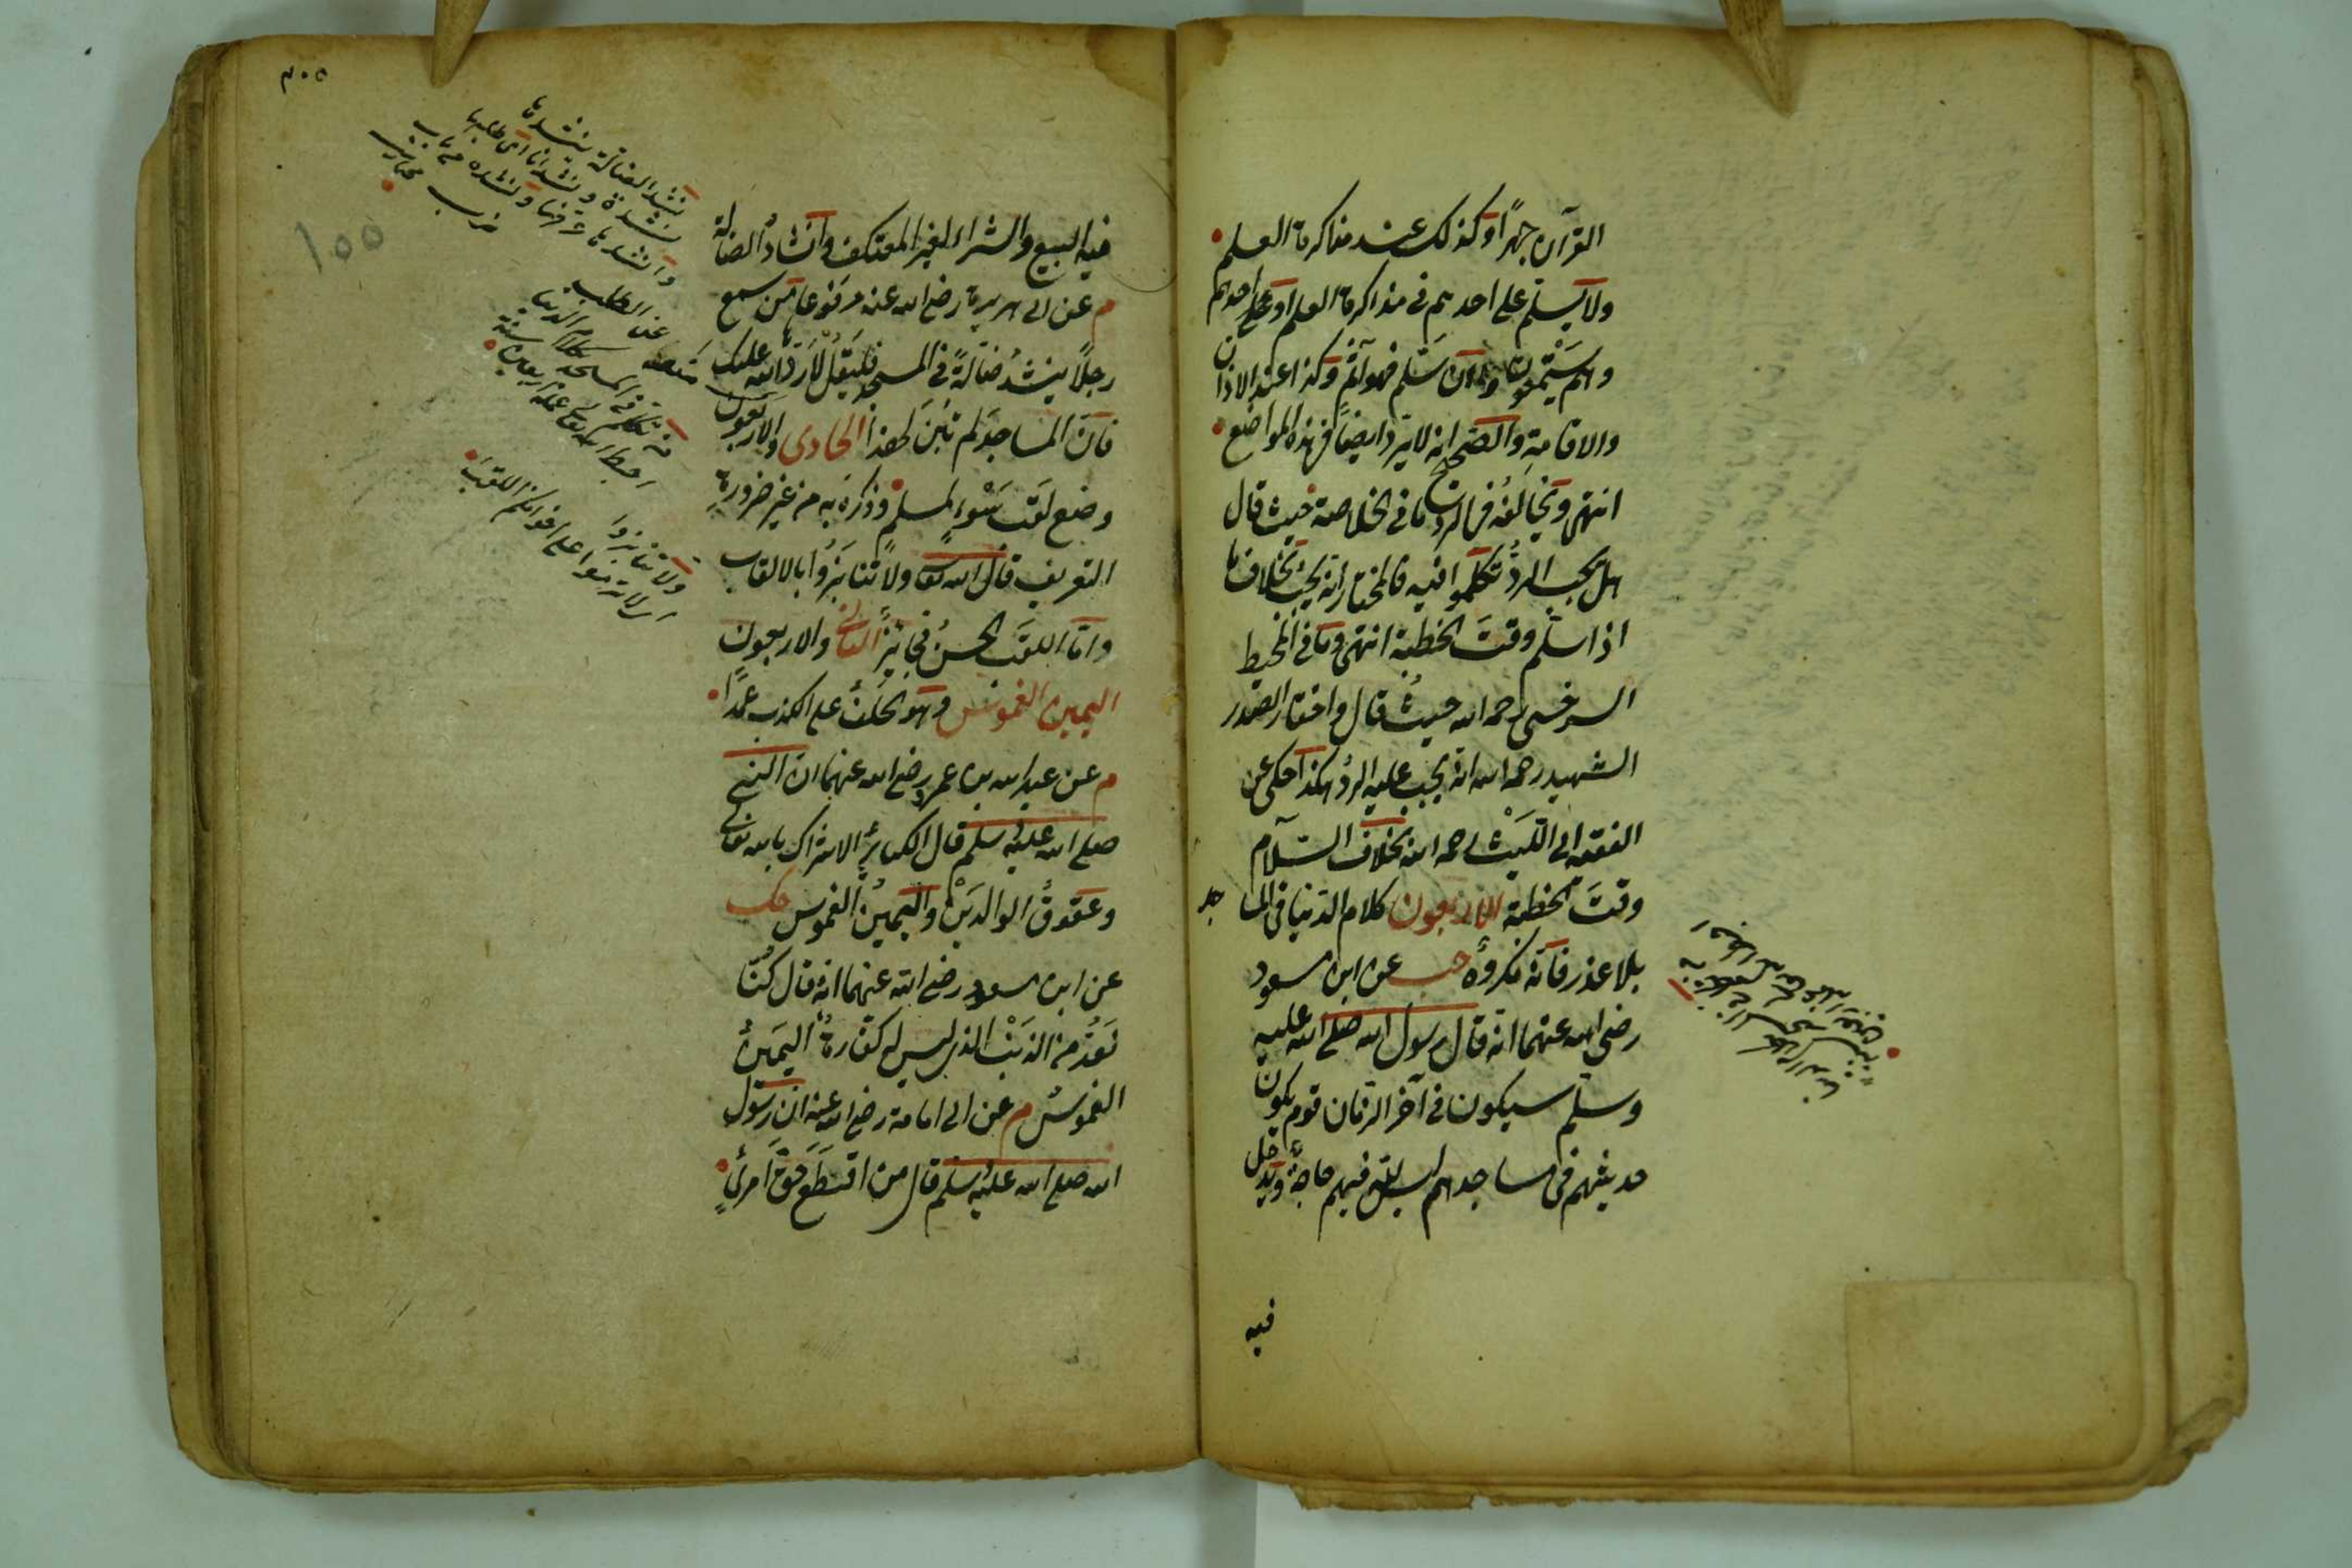 القرآن جهرًا وكذلك عند مذاكرة العلم
ولا يسلم على احدهم فى مذاكرة العلم او على احدهم
وهم يستمعون وان سلم فهو آثم وكذا عند الاذان
والاقامة والصحيح انه لا يرد ايضا فى هذه المواضع
انتهى ويخالفه فى الرد ما فى الخلاصة حيث قال
هل يجب الرد تكلموا فيه فالمختار انه يجب بخلاف ما
اذا سلم وقت الخطبة انتهى وما فى المحيط
السرخسى رحمه الله حيث قال واختار الصدر
الشهيد رحمه الله انه يجب عليه الرد هكذا حكى عن
الفقيه ابى الليث رحمه الله بخلاف السلام
وقت الخطبة الاربعون كلام الدنيا فى المساجد
بلا عذر فانه مكروه حب عن ابن مسعود
رضى الله عنهما انه قال رسول الله صلى الله عليه
وسلم سيكون فى آخر الزمان قوم يكون
حديثهم فى مساجدهم ليس لله فيهم حاجة ويدخل
فيه
٣٠٥
155
فيه البيع والشراء لغير المعتكف وانشاد الضالة
م عن ابى هريرة رضى الله عنه مرفوعا من سمع
رجلاً ينشد ضالةً فى المسجد فليقل لا ردها الله عليك
فان المساجد لم تبن لهذا الحادى والاربعون
وضع لقب سوء لمسلم وذكره به من غير ضرورة
التعريف قال الله تعا ولا تنابزوا بالالقاب
واما اللقب الحسن فجائز الثانى والاربعون
اليمين الغموس وهو الحلف على الكذب عمدًا
م عن عبد الله بن عمرو رضى الله عنهما ان النبى
صلى الله عليه وسلم قال الكبائر الاشراك بالله تعالى
وعقوق الوالدين واليمين الغموس حك
عن ابن مسعود رضى الله عنهما انه قال كنا
نعد من الذنب الذى ليس له كفارة اليمين
الغموس م عن ابى امامة رضى الله عنه ان رسول
الله صلى الله عليه وسلم قال من اقتطع حق امرئ
نشد الضالة ينشدها
نشدة ونشدانا اى طلبها
وانشدها عرفها ونشده من باب
ضرب
من تكلم فى المسجد كلام الدنيا
احبط الله تعالى عمله اربعين سنة
ولا تنابزوا